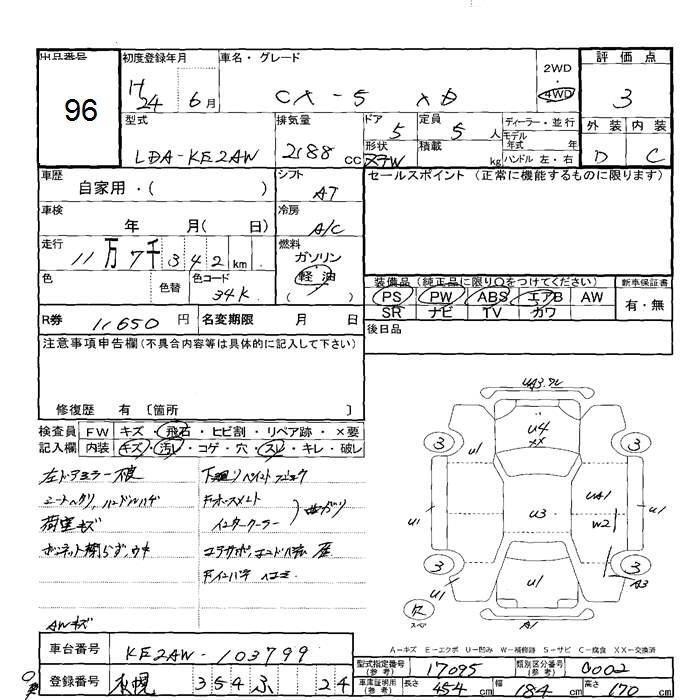 出品番号 初度登録年月 車名・グレード 2WD・4WD 評価点
96 H24 6月 CX-5 XD 3
型式 排気量 ドア 定員 ディーラー・並行 外装 内装
LDA-KE2AW 2188cc 5 5人 モデル年式 年式 D C
形状 積載 kg ハンドル 左・右
ステW
車歴 シフト セールスポイント (正常に機能するものに限ります)
自家用・( ) AT
車検 冷房
年 月( 日) A/C
走行 燃料
11万7千342km ガソリン
軽油
( )
色 色替 色コード 34K
装備品 (純正品に限り○をつけてください) 新車保証書
PS PW ABS エアB AW 有・無
SR ナビ TV カワ
R券 11,650円 名変期限 月 日 後日品
注意事項申告欄(不具合内容等は具体的に記入して下さい)
修復歴 有 〔箇所 〕
検査員 FW キズ・飛石・ヒビ割・リペア跡・×要
記入欄 内装 キズ・汚レ・コゲ・穴・スレ・キレ・破レ
左ドアミラー不良
シートヘタリ、ハンドルハゲ
荷室キズ
AWキズ
インタークーラー
曲ガリ
UA3
U4
XX
U1
3
3
UA1
U1
U3
W2
U1
3
3
U1
U1
A3
A1
R
スペア
A-キズ E-エクボ U-凹み W-補修跡 S-サビ C-腐食 XX-交換済
車台番号 KE2AW-103799
型式指定番号(参考) 17095 類別区分番号(参考) 0002
登録番号 札幌 354 ふ 24
車庫証明サイズ(参考) 長さ 454cm 幅 184cm 高さ 170cm